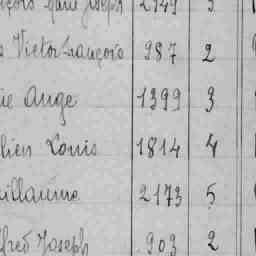 Joseph 2549 5
Victor François 987 2
Ange 1399 3
Louis 1814 4
uillaume 2173 5
fred Joseph 903 2